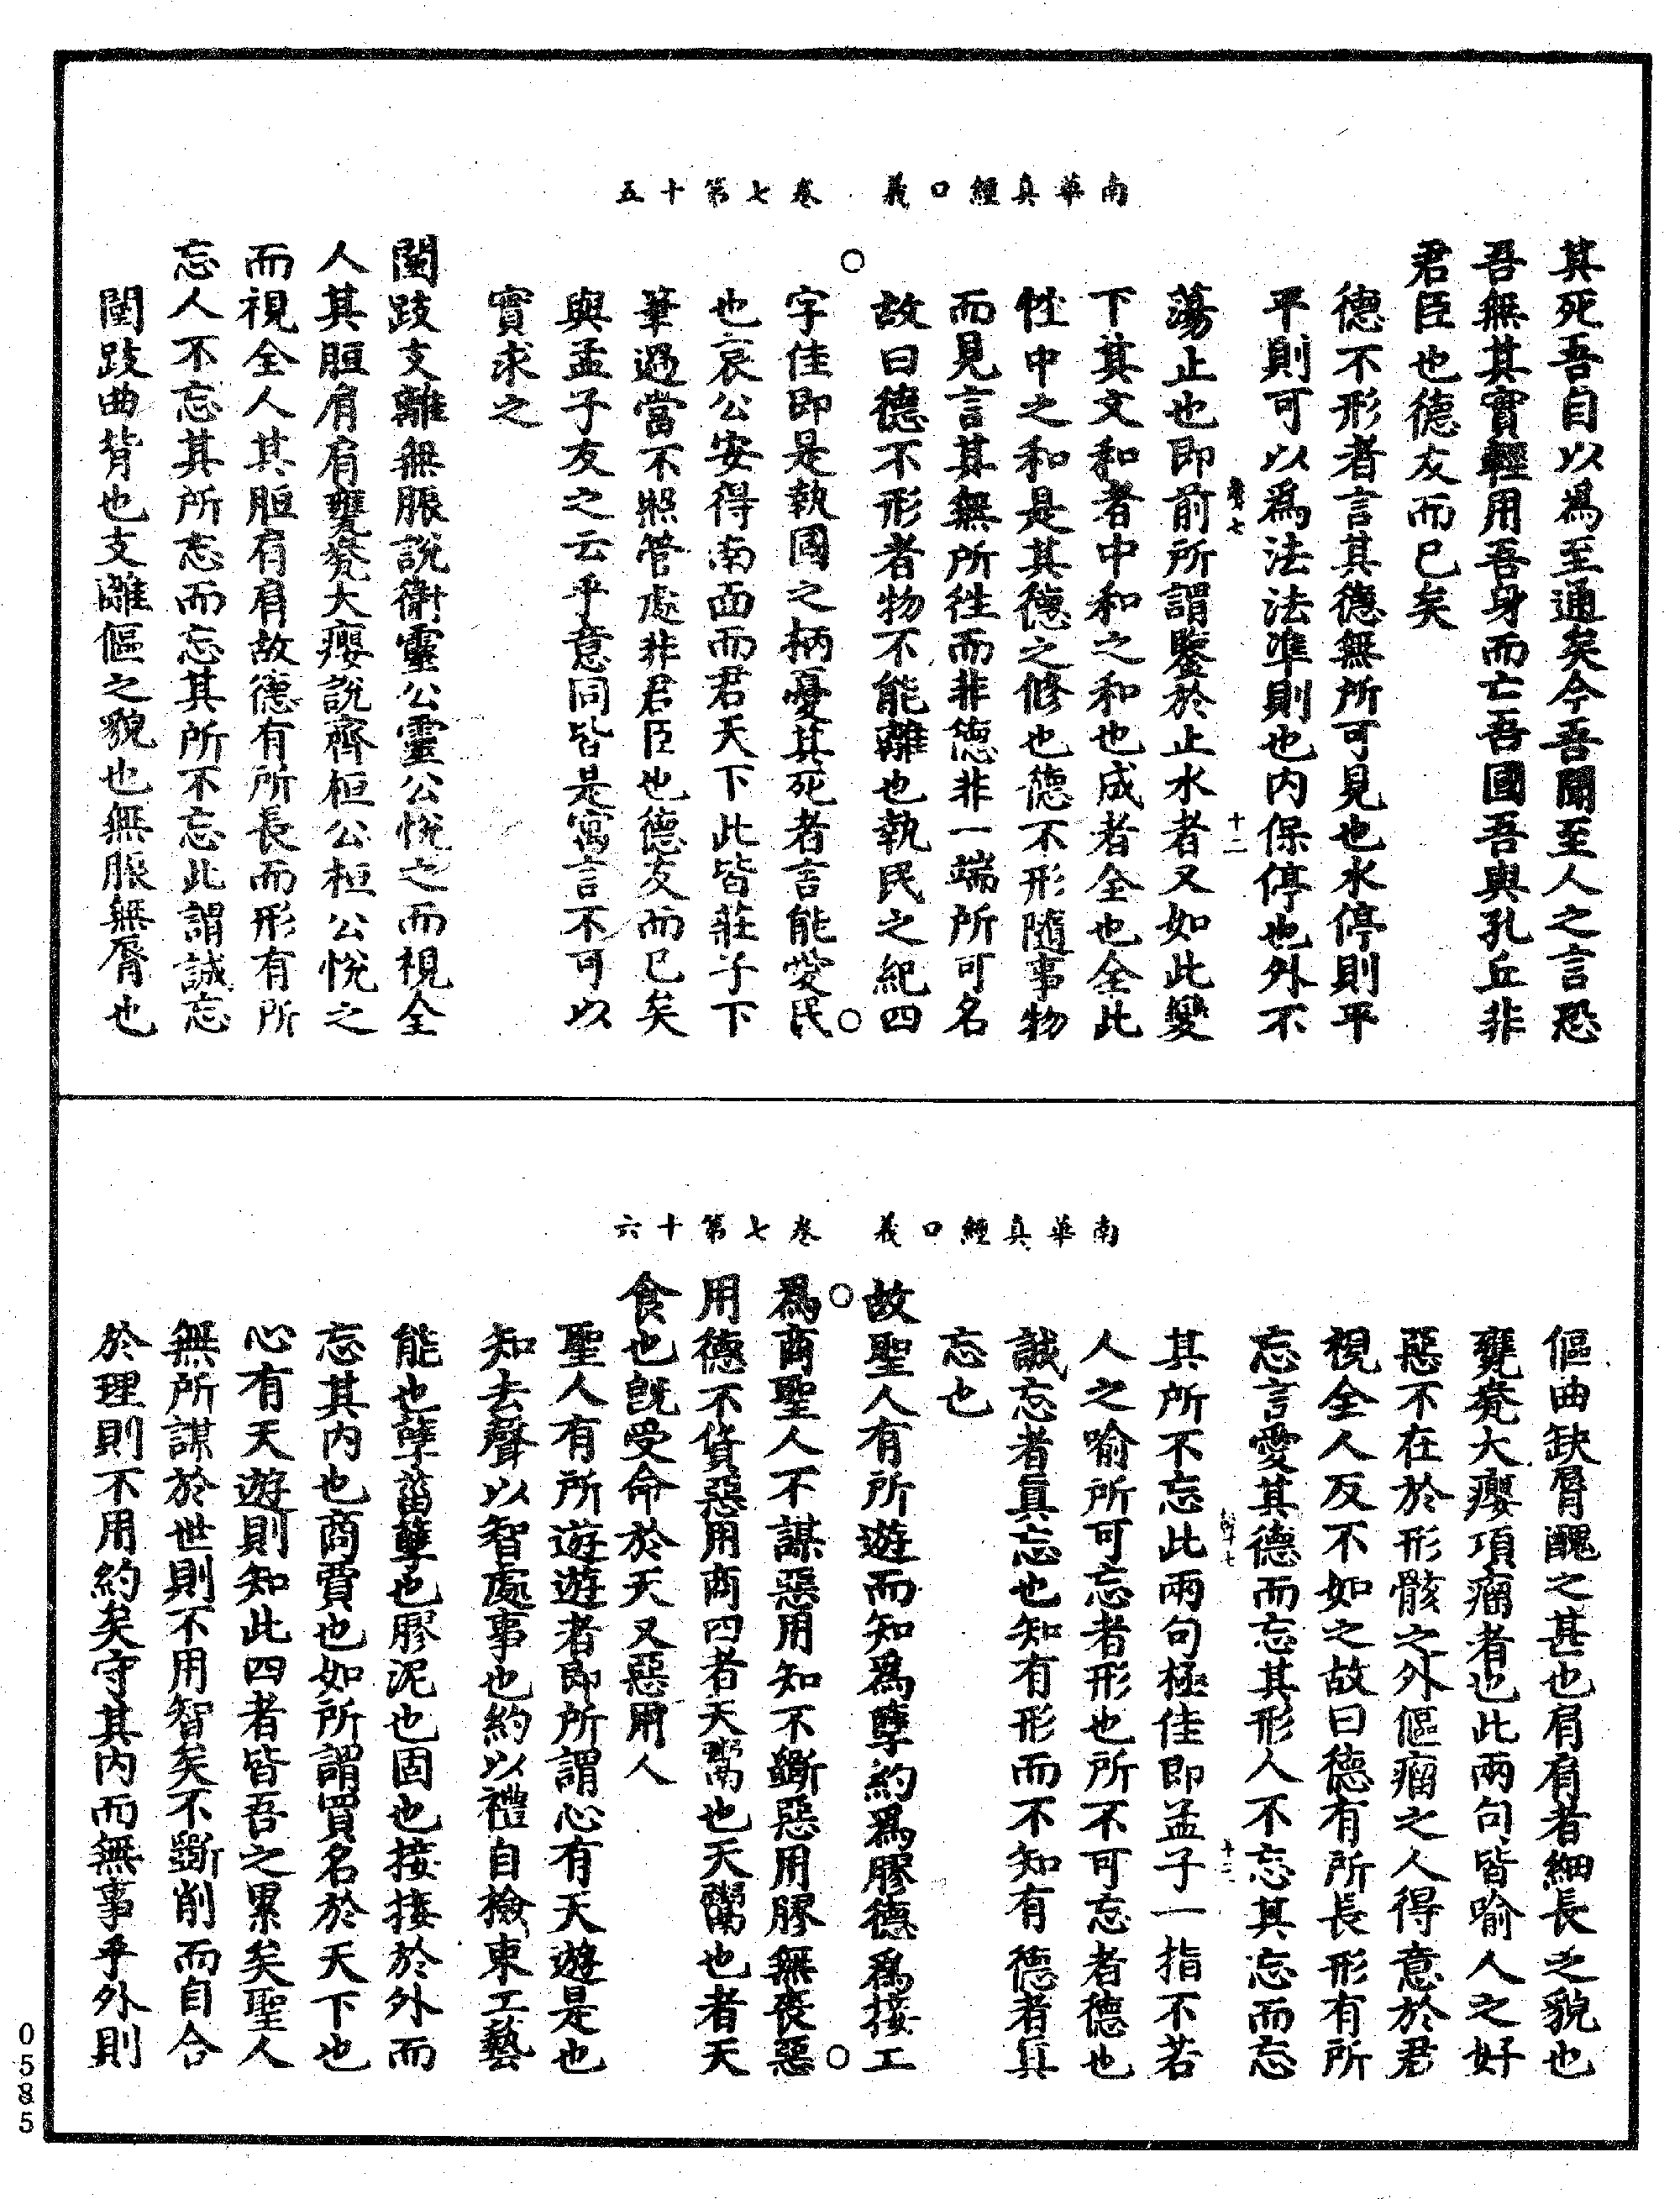 南華真經口義　卷七第十五
其死吾自以爲至通矣今吾聞至人之言恐
吾無其實輕用吾身而亡吾國吾與孔丘非
君臣也德友而已矣
德不形者言其德無所可見也水停則平
平則可以爲法法準則也内保停也外不
蕩止也即前所謂鑒於止水者又如此變
下其文和者中和之和也成者全也全此
性中之和是其德之修也德不形隨事物
而見言其無所往而非德非一端所可名
故曰德不形者物不能離也執民之紀四
字佳即是執國之柄憂其死者言能愛民
也哀公安得南面而君天下此皆莊子下
筆過當不照管處非君臣也德友而已矣
與孟子友之云乎意同皆是寓言不可以
實求之
闉跂支離無脤說衛靈公靈公悅之而視全
人其脰肩肩甕㼜大癭說齊桓公桓公悅之
而視全人其脰肩肩故德有所長而形有所
忘人不忘其所忘而忘其所不忘此謂誠忘
闉跂曲背也支離傴之貌也無脤無脣也
南華真經口義　卷七第十六
傴曲缺脣醜之甚也肩肩者細長之貌也
甕㼜大癭項瘤者也此兩句皆喻人之好
惡不在於形骸之外傴瘤之人得意於君
視全人反不如之故曰德有所長形有所
忘言愛其德而忘其形人不忘其忘而忘
其所不忘此兩句極佳即孟子一指不若
人之喻所可忘者形也所不可忘者德也
誠忘者眞忘也知有形而不知有德者眞
忘也
故聖人有所遊而知爲孽約爲膠德爲接工
爲商聖人不謀惡用知不斲惡用膠無喪惡
用德不貨惡用商四者天鬻也天鬻也者天
食也旣受命於天又惡用人
聖人有所遊遊者即所謂心有天遊是也
知去聲以智處事也約以禮自檢束工藝
能也孽菑孽也膠泥也固也接接於外而
忘其内也商賈也如所謂買名於天下也
心有天遊則知此四者皆吾之累矣聖人
無所謀於世則不用智矣不斲削而自合
於理則不用約矣守其内而無事乎外則
卷七
十二
十三
0585